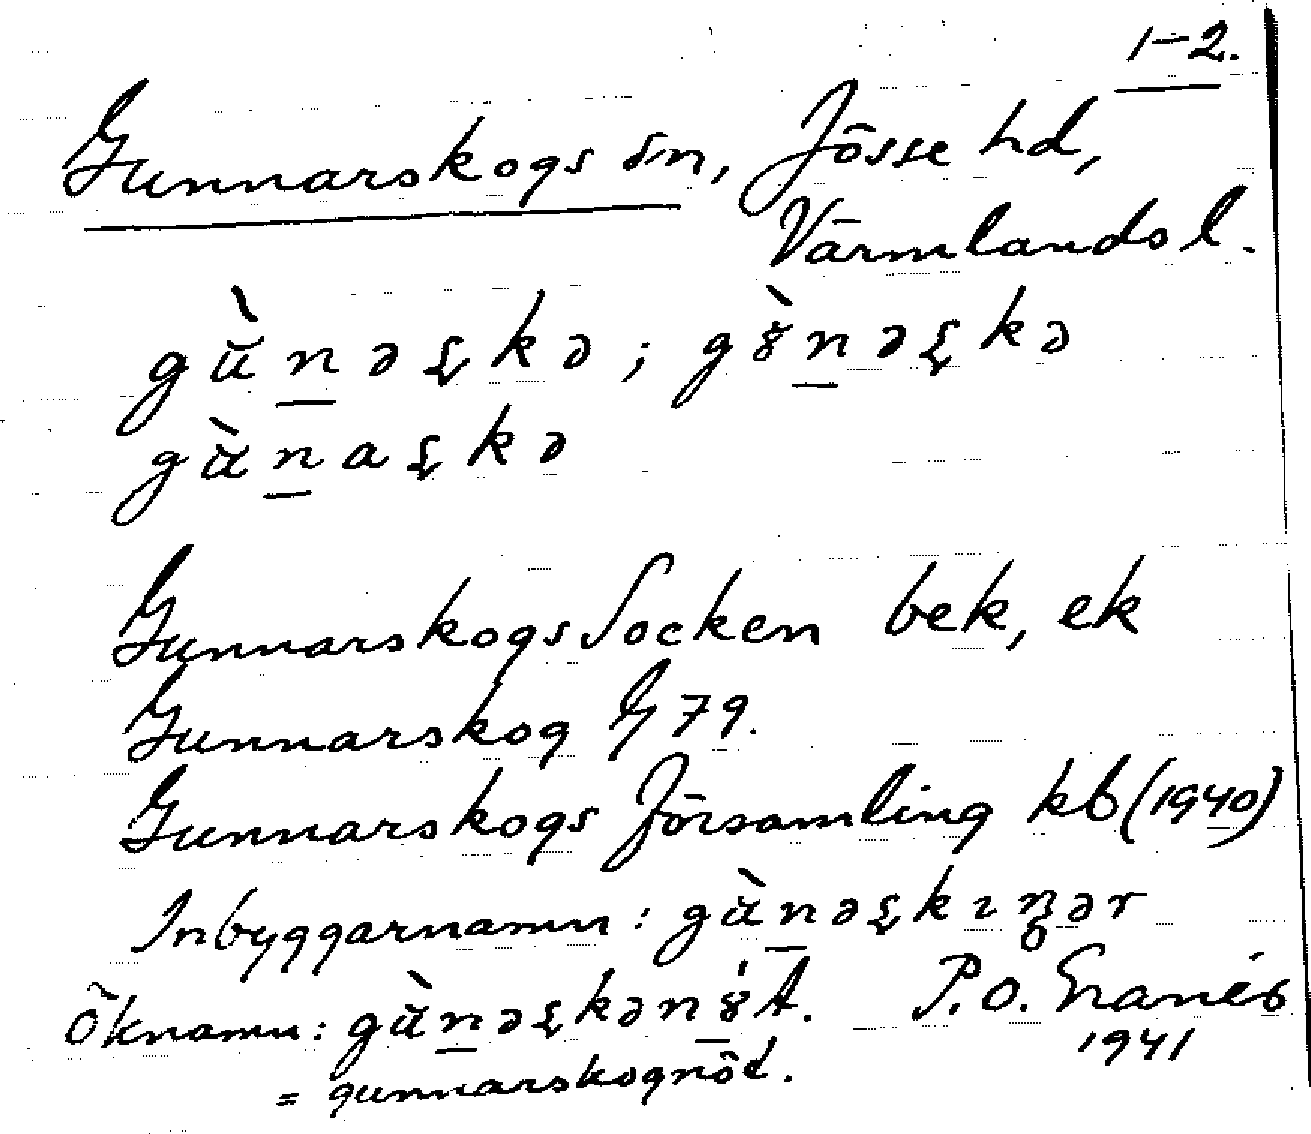 1–2.
Gunnarskogs sn, Jösse hd,
Värmlands l.
gùn̲əʂkə; gɤ̀n̲əʂkə
gùn̲aʂkə
Gunnarskogs Socken bek, ek
Gunnarskog G 79.
Gunnarskogs församling kb (1940)
Inbyggarnamn: gùn̲əʂkıŋər
Öknamn: gùn̲əʂkən̲ɤ́t.
P.O. Granér
1941
= gunnarskognöd.